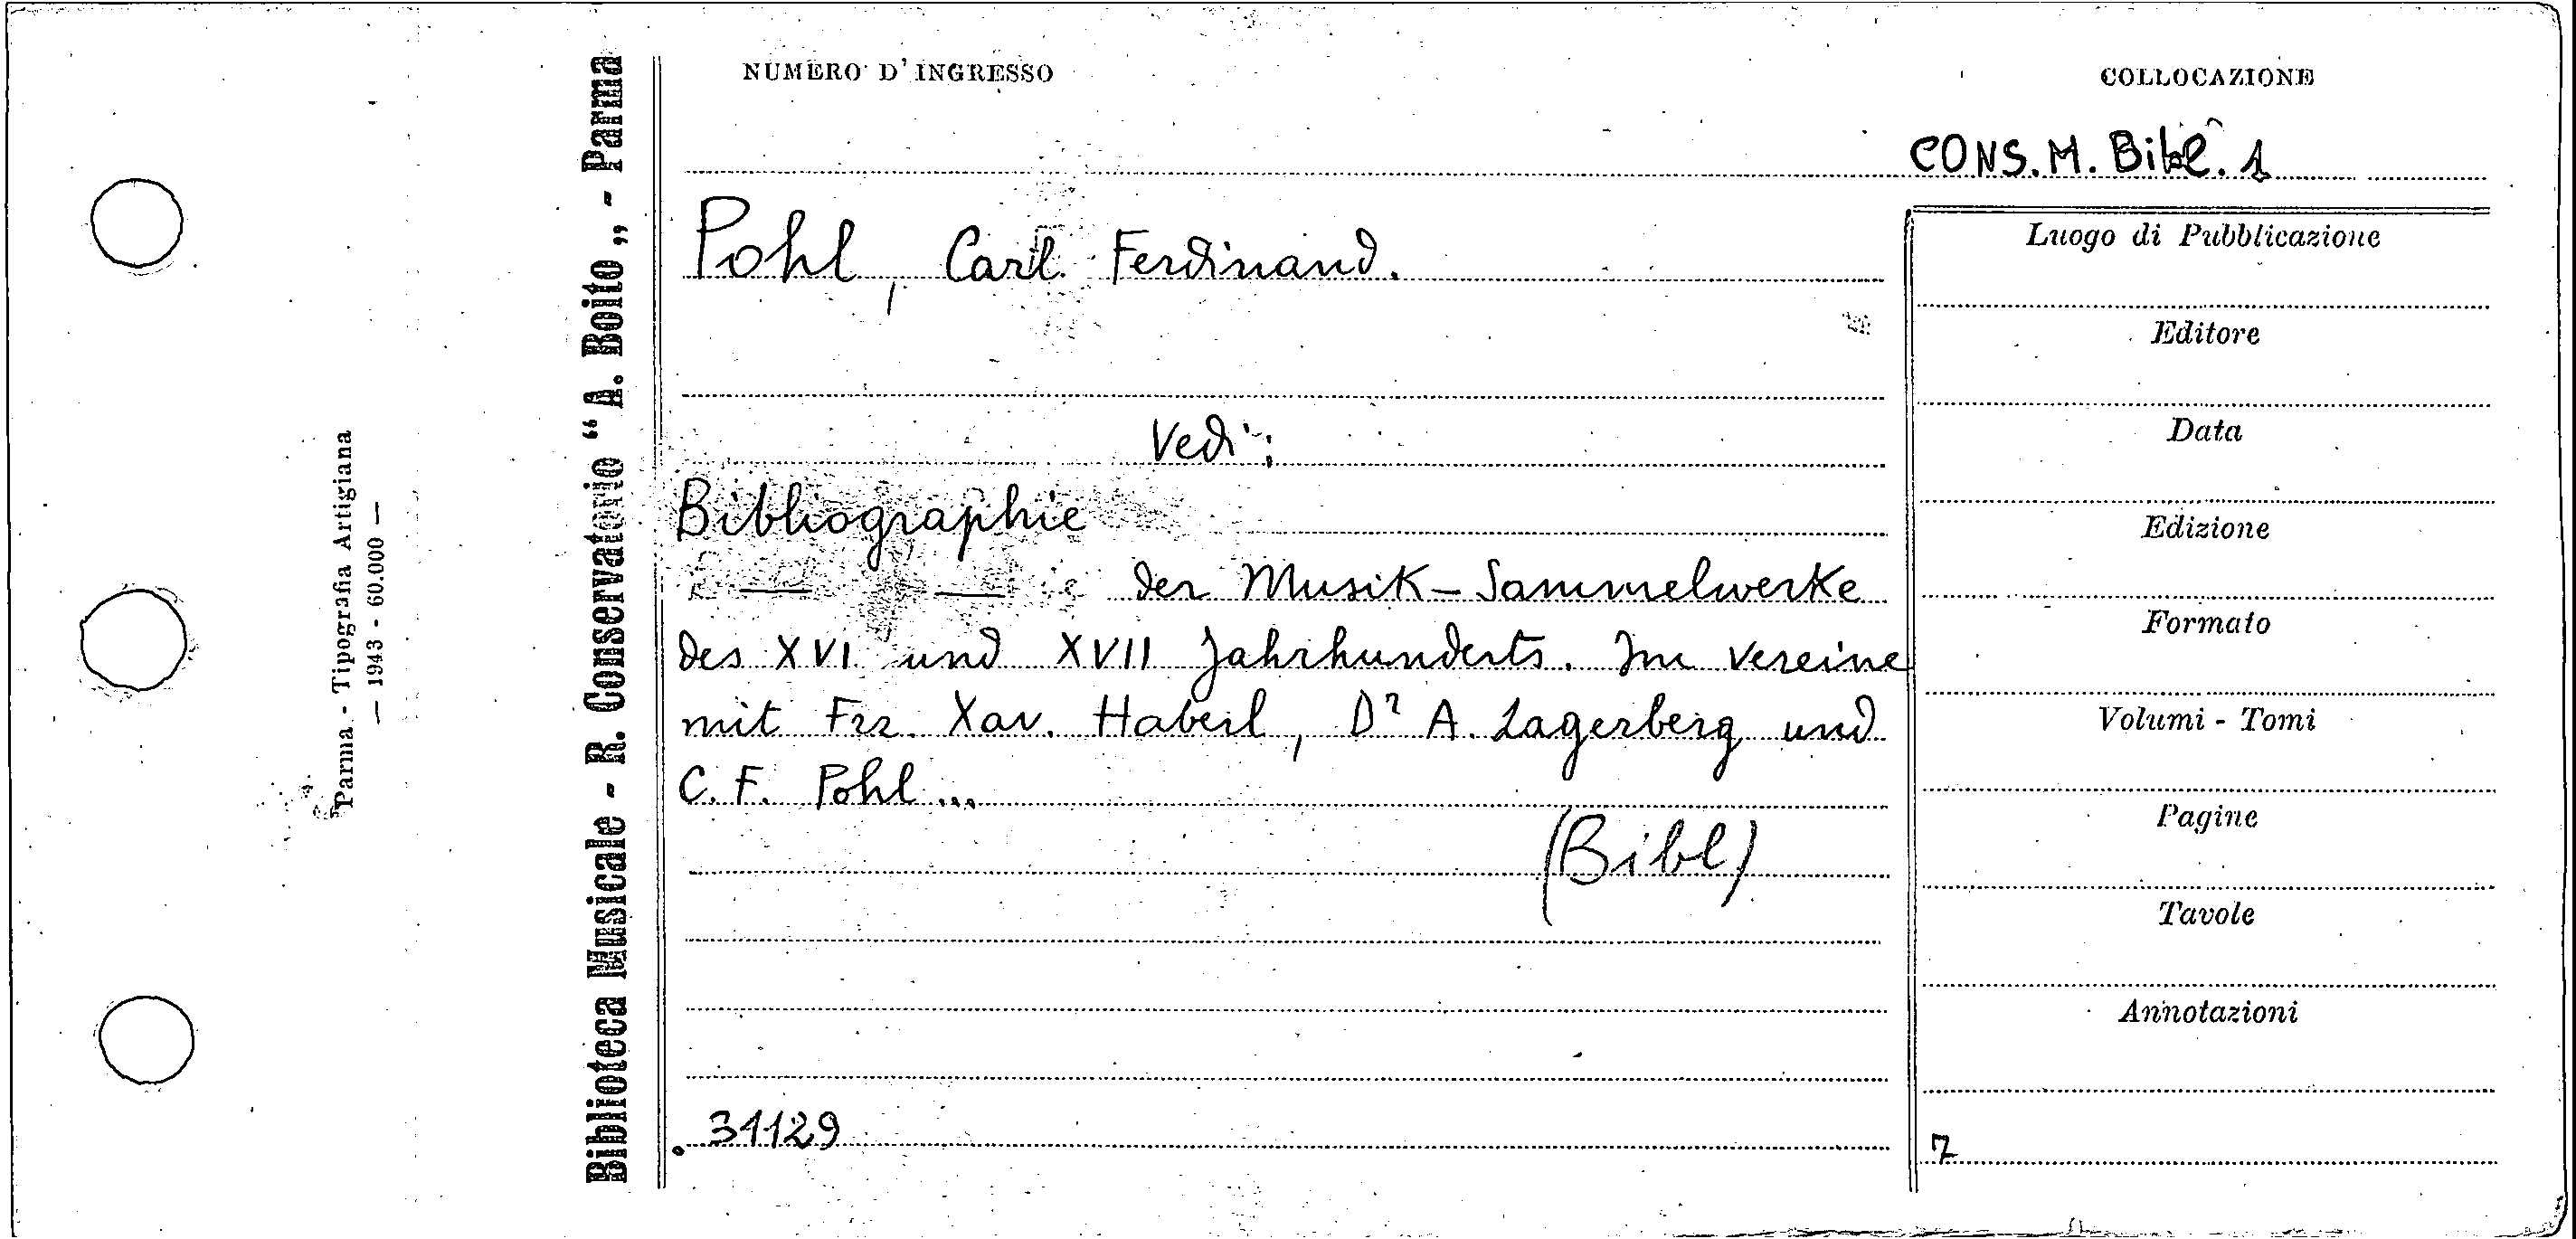 NUMERO D'INGRESSO
COLLOCAZIONE
CONS. M. Bibl. 1
Pohl, Carl Ferdinand.
Vedi:
Bibliographie
der Musik-Sammelwerke
des XVI und XVII Jahrhunderts. Im Vereine
mit Frz. Xav. Haberl, Dr A. Lagerberg und
C. F. Pohl...
(Bibl)
31129
Luogo di Pubblicazione
Editore
Data
Edizione
Formato
Volumi - Tomi
Pagine
Tavole
Annotazioni
7
Biblioteca Musicale - R. Conservatorio "A. Boito" - Parma
Parma - Tipografia Artigiana
— 1943 - 60.000 —